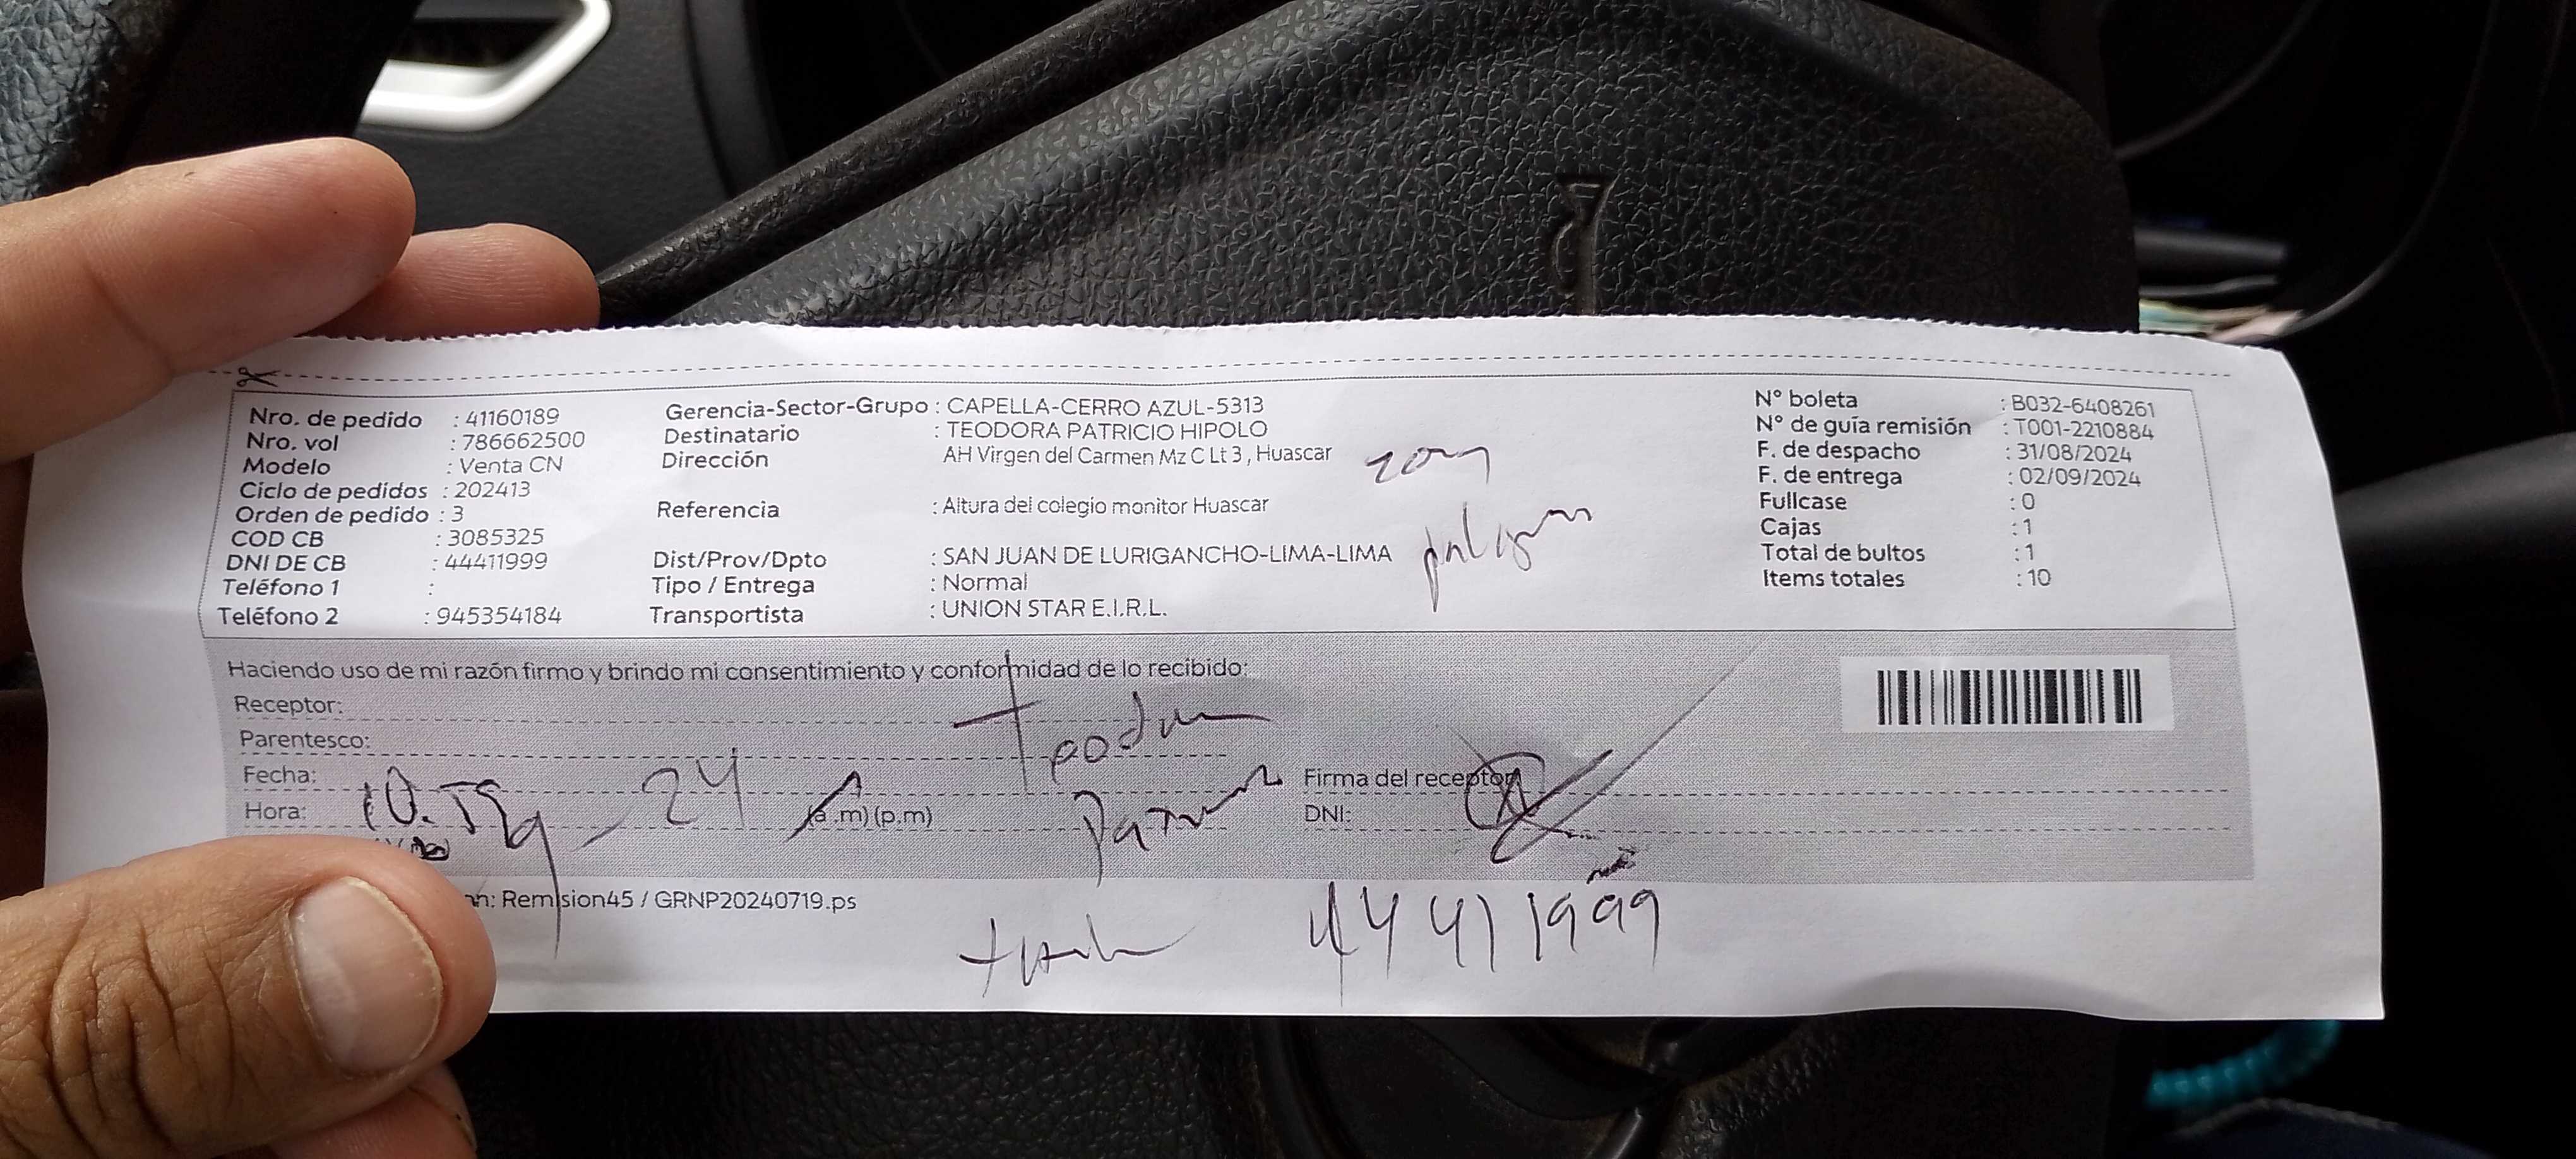 Nro. de pedido : 41160189
Nro. vol : 786662500
Modelo : Venta CN
Ciclo de pedidos : 202413
Orden de pedido : 3
COD CB : 3085325
DNI DE CB : 44411999
Teléfono 1 :
Teléfono 2 : 945354184
Gerencia-Sector-Grupo : CAPELLA-CERRO AZUL-5313
Destinatario : TEODORA PATRICIO HIPOLO
Dirección AH Virgen del Carmen Mz C Lt 3 , Huascar
Referencia : Altura del colegio monitor Huascar
Dist/Prov/Dpto : SAN JUAN DE LURIGANCHO-LIMA-LIMA
Tipo / Entrega : Normal
Transportista : UNION STAR E.I.R.L.
N° boleta : B032-6408261
N° de guía remisión : T001-2210884
F. de despacho : 31/08/2024
F. de entrega : 02/09/2024
Fullcase : 0
Cajas : 1
Total de bultos : 1
Items totales : 10
Haciendo uso de mi razón firmo y brindo mi consentimiento y conformidad de lo recibido:
Receptor:
Parentesco:
Fecha:
Hora: (a.m) (p.m)
Firma del receptor
DNI:
44411999
Remision45 / GRNP20240719.ps